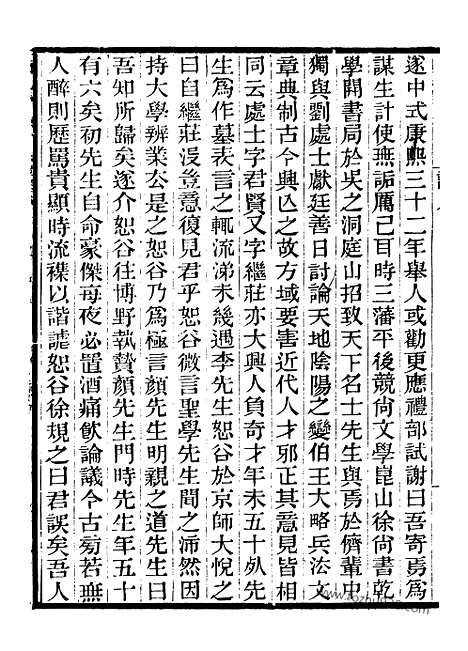 遂中式康熙三十二年舉人或勸更應禮部試謝曰吾寄焉爲
謀生計使無詬厲己耳時三藩平後競尙文學崑山徐尙書乾
學開書局於吳之洞庭山招致天下名士先生與焉於儕輩中
獨與劉處士獻廷善日討論天地陰陽之變伯王大略兵法文
章典制古今興亾之故方域要害近代人才邪正其意見皆相
同云處士字君賢又字繼莊亦大興人負奇才年未五十夗先
生爲作墓表言之輒流涕未幾遇李先生恕谷於京師大悅之
曰自繼莊沒豈意復見君乎恕谷微言聖學先生聞之沛然因
持大學辨業去是之恕谷乃爲極言顏先生明親之道先生曰
吾知所歸矣遂介恕谷往博野執贄顏先生門時先生年五十
有六矣初先生自命豪傑每夜必置酒痛飮論議今古菊若無
人醉則歷罵貴顯時流襍以諧謔恕谷徐規之曰君誤矣吾人